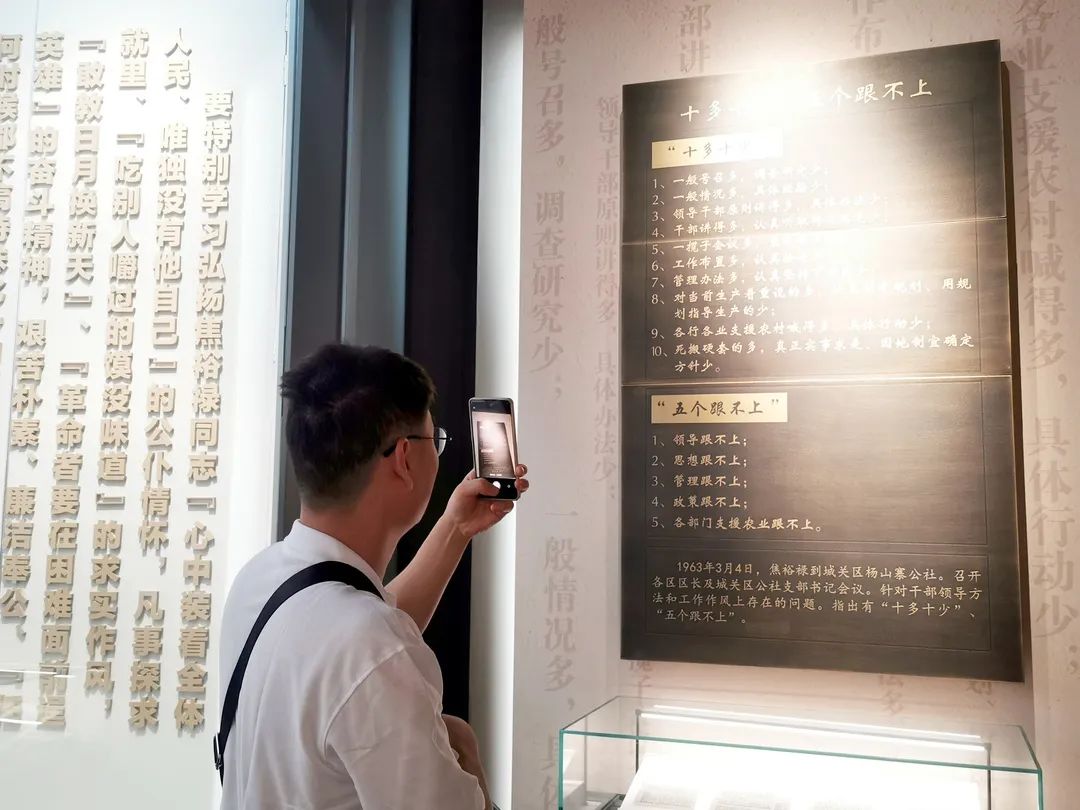 要特别学习弘扬焦裕禄同志「心中装着全体
人民、唯独没有他自己」的公仆情怀，凡事探求
就里、「吃别人嚼过的馍没味道」的求实作风，
「敢教日月换新天」、「革命者要在困难面前逞
英雄」的奋斗精神，艰苦朴素、廉洁奉公、
般号召多，调查研究少；
领导干部原则讲得多，具体办法少；
一般情况多，具
部讲
作布
各业支援农村喊得多，具体行动少；
十多十 五个跟不上
“十多十少
1、一般号召多，调查研究少；
2、一般情况多，具体
3、领导干部原则讲得多，具体办法少；
4、干部讲得多，认真
5、一揽子会议多，
6、工作布置多，认真
7、管理办法多，认真
8、对当前生产着重说的多， 规划、用规
划指导生产的少；
9、各行各业支援农村喊得多，具体行动少；
10、死搬硬套的多，真正实事求是、因地制宜确定
方针少。
“五个跟不上”
1、领导跟不上；
2、思想跟不上；
3、管理跟不上；
4、政策跟不上；
5、各部门支援农业跟不上。
1963年3月4日，焦裕禄到城关区杨山寨公社。召开
各区区长及城关区公社支部书记会议。针对干部领导方
法和工作作风上存在的问题。指出有“十多十少”、
“五个跟不上”。